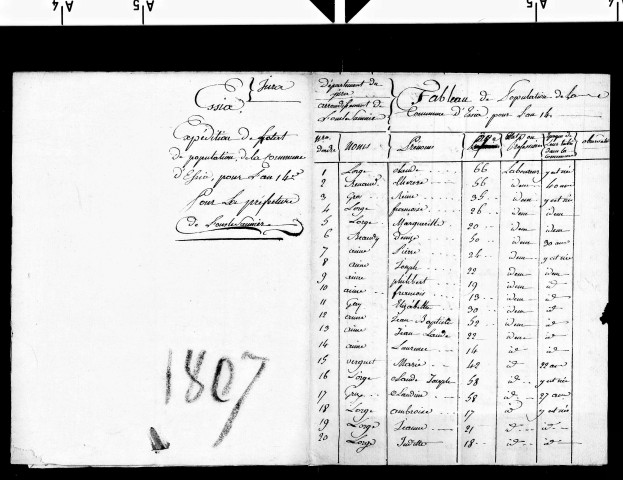 A4
A5
A5
A4
Jura
Essia
Expédition de l'etat
de population, de la Commune
d'Essia, pour L'an 14e
Pour La préfecture
de Lons le Saunier
1807
Département du
Jura
arrondissement de
Lons le Saunier
Tableau de Population de la
Commune d'Essia, pour L'an 14.
Nos d'ordre Noms Prenoms Age Etat ou Profession Epoque de leur entrée dans la Commune observations
1 Lorge Claude 66 Laboureur y est née
2 Renaud therese 56 idem 40 ans
3 Gros Reine 35 idem y est née
4 Lorge françoise 26 idem idem
5 Lorge Margueritte 20 idem idem
6 Denize 50 idem 30 ans
7 aime Pierre 24 idem y est née
8 aime Joseph 22 idem idem
9 aime philibert 19 idem id
10 aime françois 13 idem id
11 Guy Elizabette 30 idem id
12 aime Jean Baptiste 52 idem id
13 aime Jean Claude 22 idem id
14 aime Laurence 14 id id
15 verguet Marie 42 id 22 ans
16 Lorge Claude Joseph 58 id y est née
17 Claudine 58 id 27 ans
18 Lorge ambroise 17 id y est née
19 Lorge Jeanne 21 id id
20 Lorge Judithe 18 id id